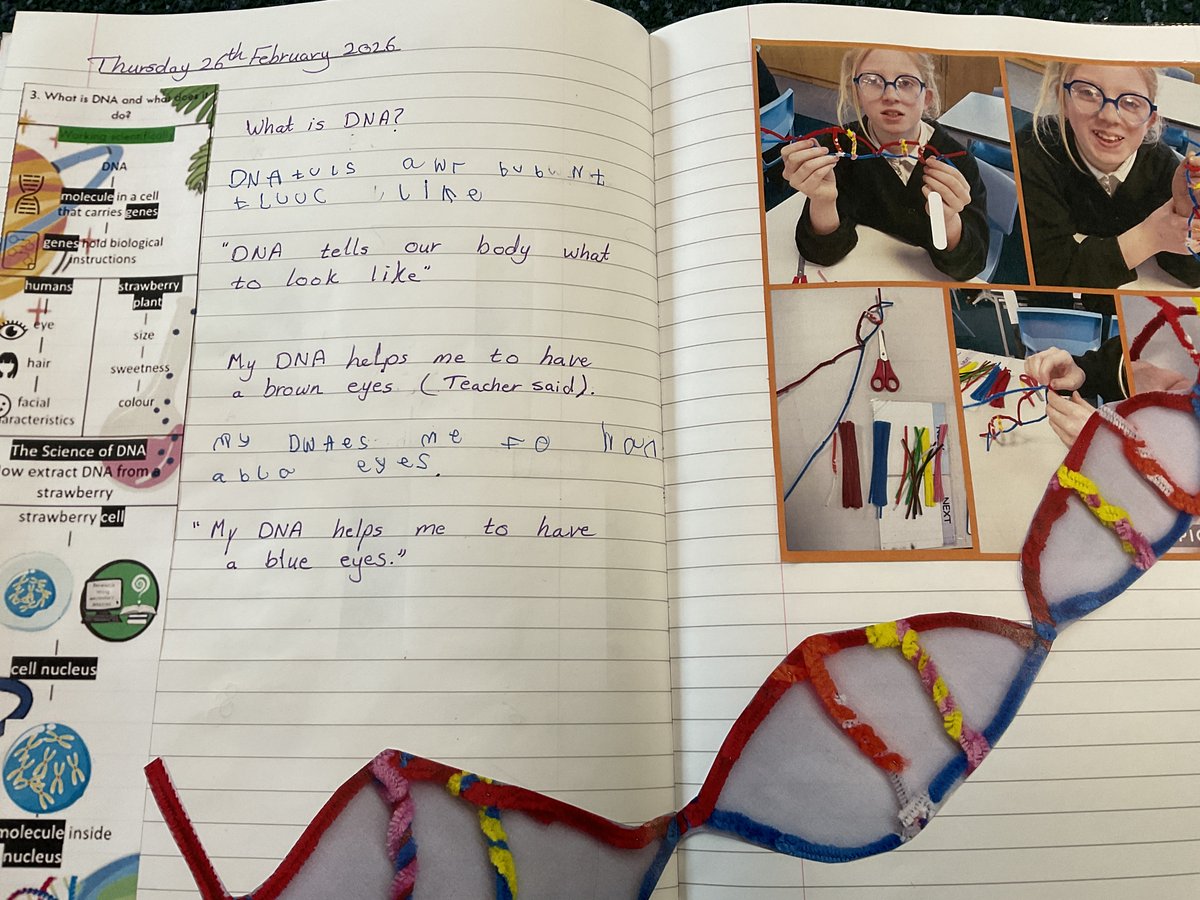 Thursday 26th February 2026
3. What is DNA and what does it
do?
Working scientifically
DNA
molecule in a cell
that carries genes
genes hold biological
instructions
humans
eye
hair
facial
characteristics
strawberry
plant
size
sweetness
colour
The Science of DNA
How extract DNA from a
strawberry
strawberry cell
cell nucleus
molecule inside
nucleus
What is DNA?
DNA tuls awr bubunt
tluuc like
"DNA tells our body what
to look like"
My DNA helps me to have
a brown eyes (Teacher said).
my DWAes me to han
a blo eyes.
"My DNA helps me to have
a blue eyes."
NEXT